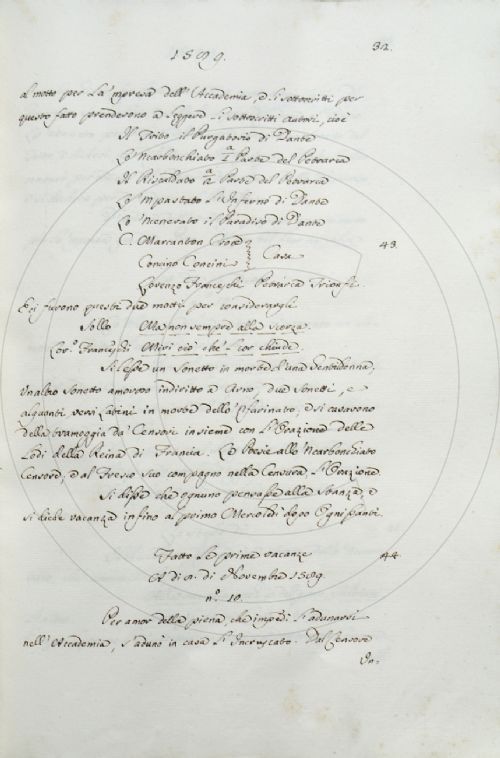 1589.
32.
al motto per la 'mpresa dell'Accademia, e i sottoscritti per
questo fatto prenderono a leggere i sottoscritti autori, cioè
Il Trito il Purgatorio di Dante
Lo 'Ncarbonchiato a 1 Parte del Petrarca
Il Riscaldato a 2 Parte del Petrarca
Lo 'Mpastato l'Inferno di Dante
Lo 'Ncenerato il Paradiso di Dante
C. Marcanton
43
Concino Concini Casa
Lorenzo Franceschi Petrarca Trionfi.
E ci furono questi due motti per considerargli
Sollo Ma non sempre alla scorza.
Lor.o Franceschi Miri ciò che 'l cor chiude.
Si lesse un sonetto in morte d'una Gentildonna,
Un altro sonetto amoroso indiritto a Arno, due sonetti, e
alquanti versi latini in morte dello 'Nfarinato, e si cavarono
della tramoggia da' Censori insieme con l'Orazione delle
Lodi della Reina di Francia. Le Poesie allo 'Ncarbonchiato
Censore, e al Fresco suo compagno nella Censura l'Orazione.
Si disse che ognuno pensasse alla stanza, e
si diede vacanza infino al primo Mercoledì dopo Ognissanti.
Fatto le prime vacanze
44
A dì di Novembre 1589.
n.o 10.
Per amor della piena, che impedì l'adunarsi
nell'Accademia, s'adunò in casa l'Incruscato. Dal Censore
In-